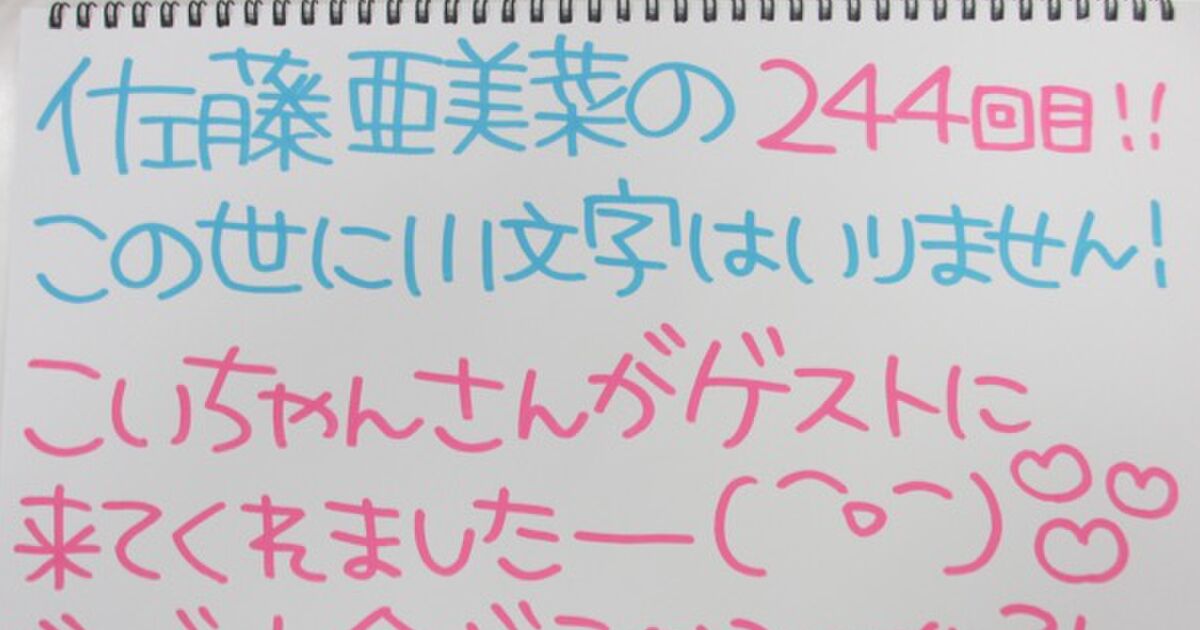 佐藤亜美菜の244回目!!
この世に小文字はいりません!
こいちゃんさんがゲストに
来てくれましたー(⌒o⌒)♡♡♡